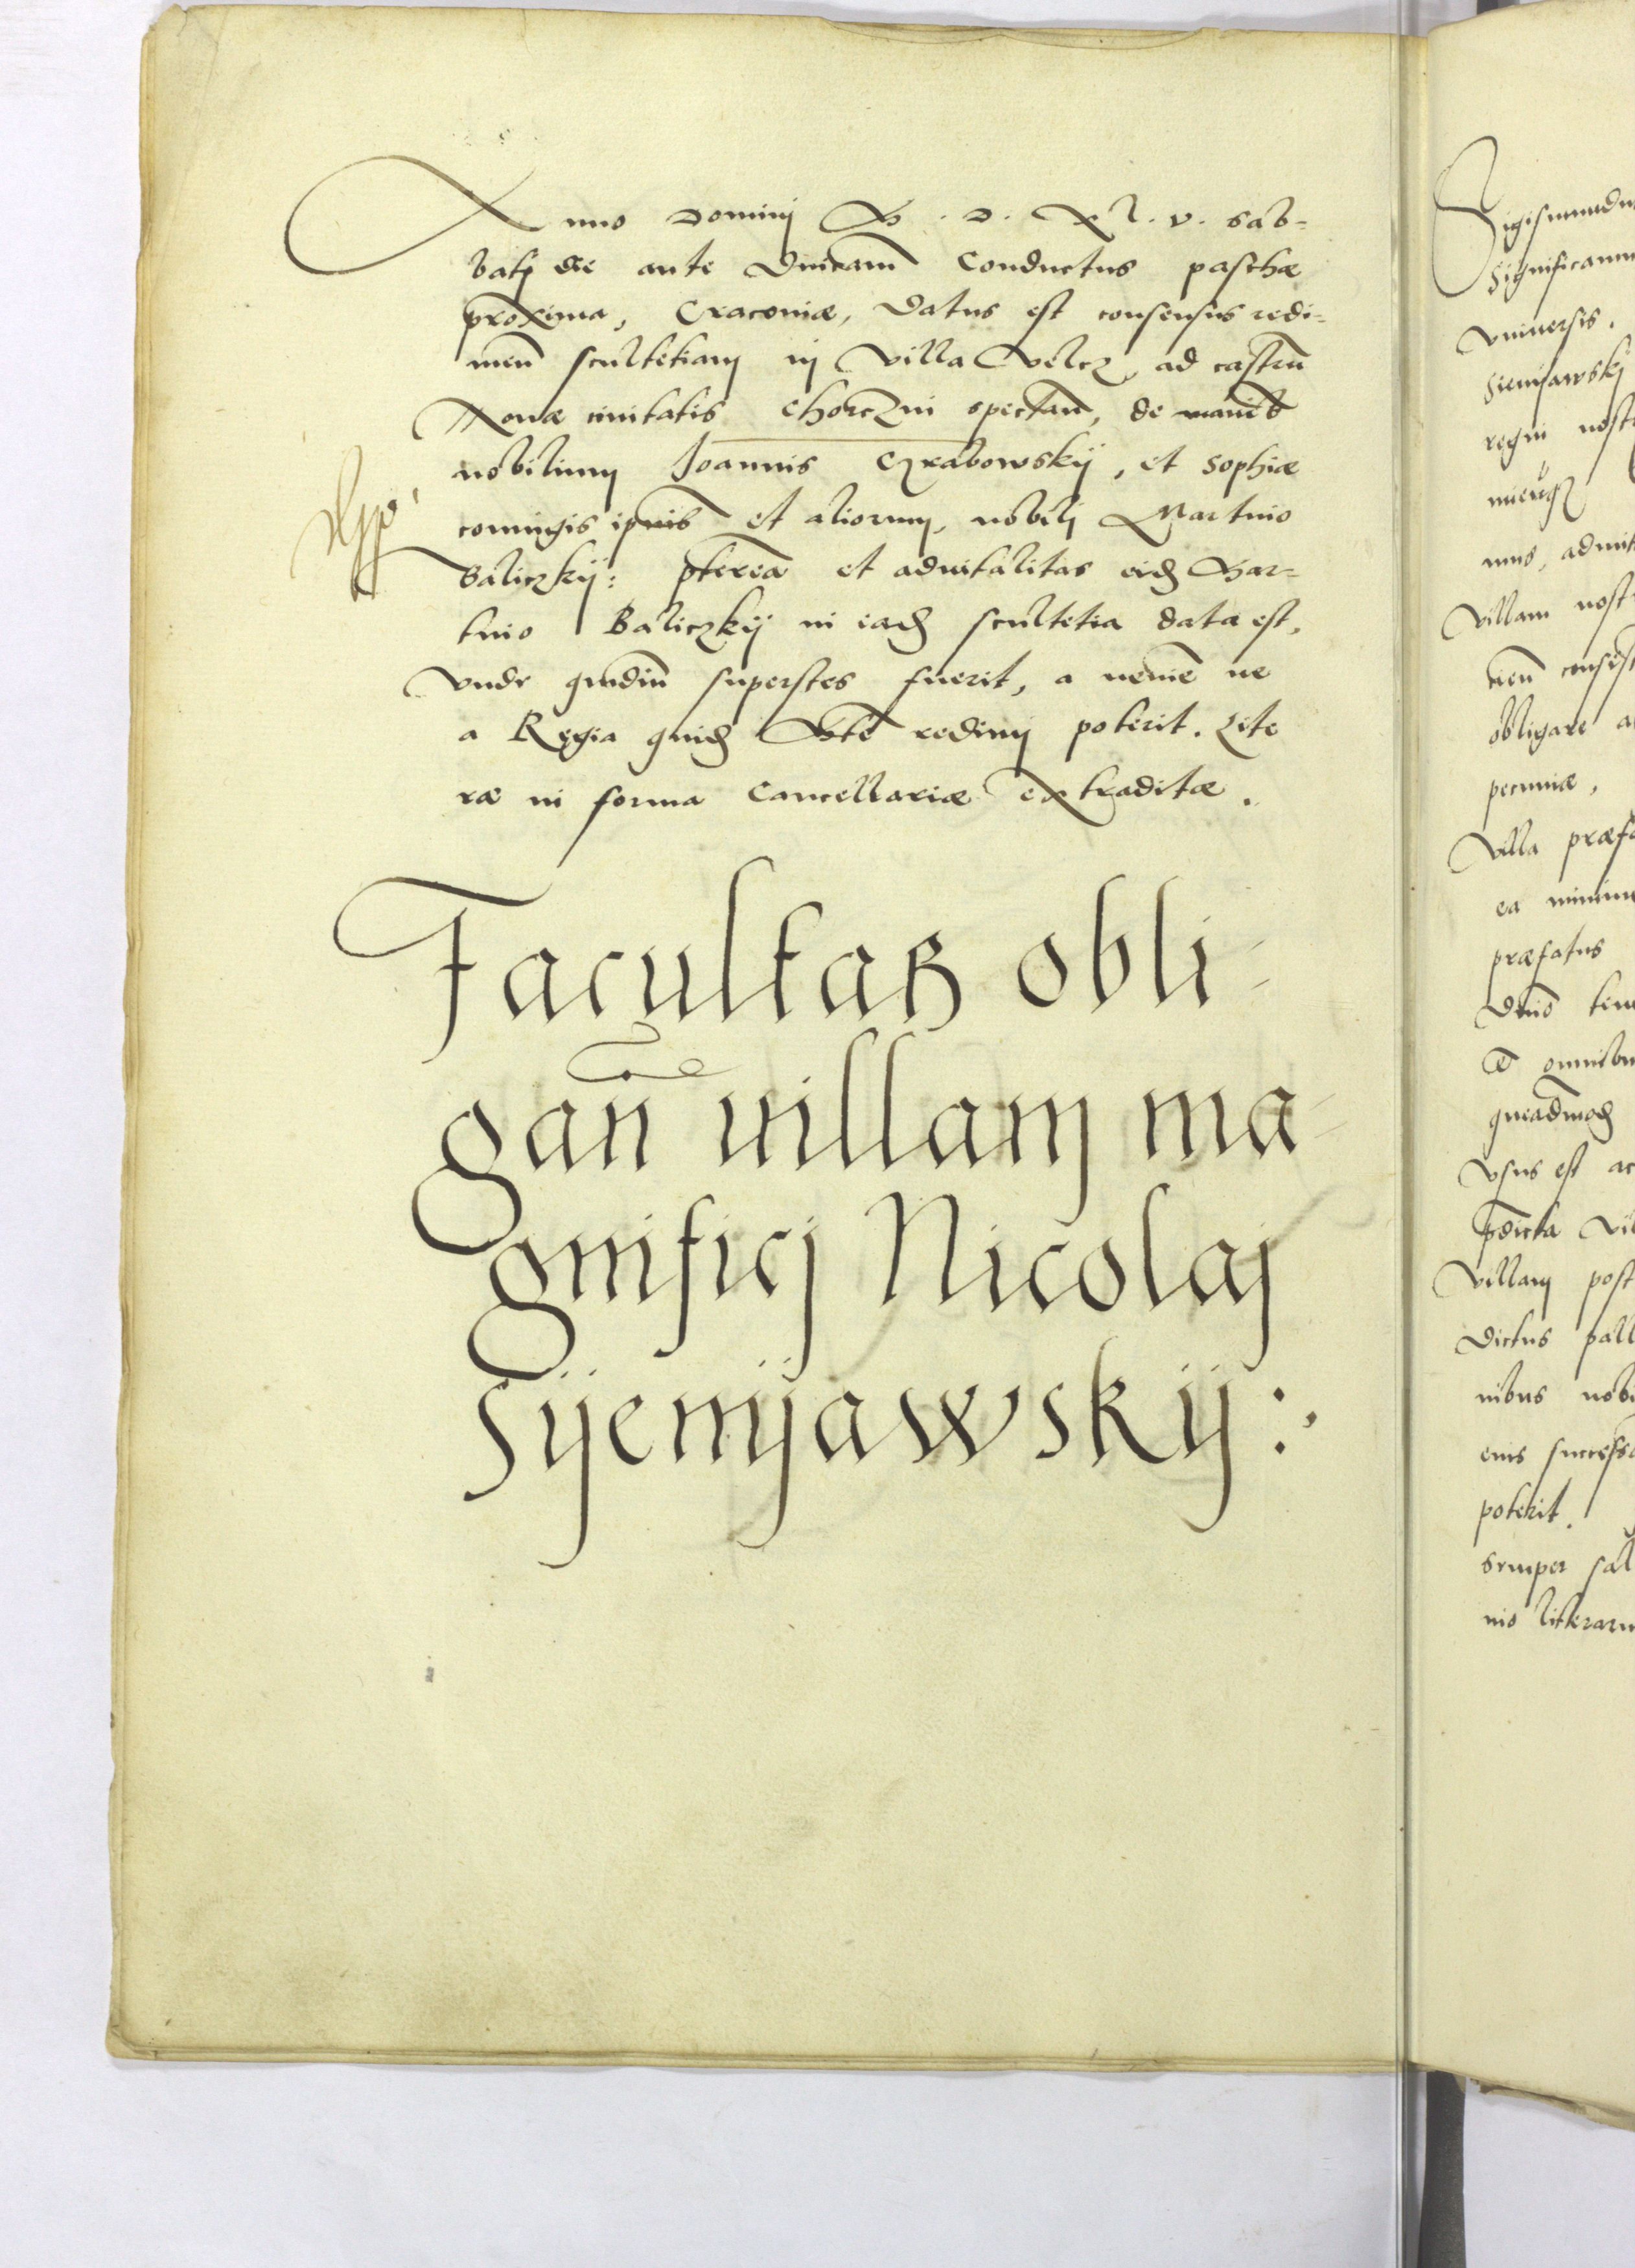 Anno Domini M. D. XL. V. Sab-
bati die ante Dnicam Conductus paschæ
proxima, Cracoviæ, Datus est consensus redi-
men scultetiam in Villa Velcz, ad castrū
Nouæ ciuitatis Chorczin spectan, de manib
nobilium Joannis Czrabowskij, et Sophiæ
coniugis ipsius et aliorum, nobili Martino
Baliczkij: pterea et aduitalitas eid Mar-
tino Baliczkij in ead scultetia data est,
Vnde qudiu superstes fuerit, a nemie ne
a Regia quid Mte redimi poterit. Lite
ræ in forma Cancellariæ extraditæ.
Facultas obli-
gan uillam ma-
gnifici Nicolai
Sijenijawskij:
Sigismundu
Significam
Vniuersis.
Sienijawskj
regni nost
mus, admit
Villam nost
obligare a
pecuniæ,
Villa præf
ea minim
præfatus
omnibu
queadmod
Vsus est ac
pdicta Vil
Villam post
Dictus pall
nibus nob
eius success
poterit.
Semper sal
nio literaru